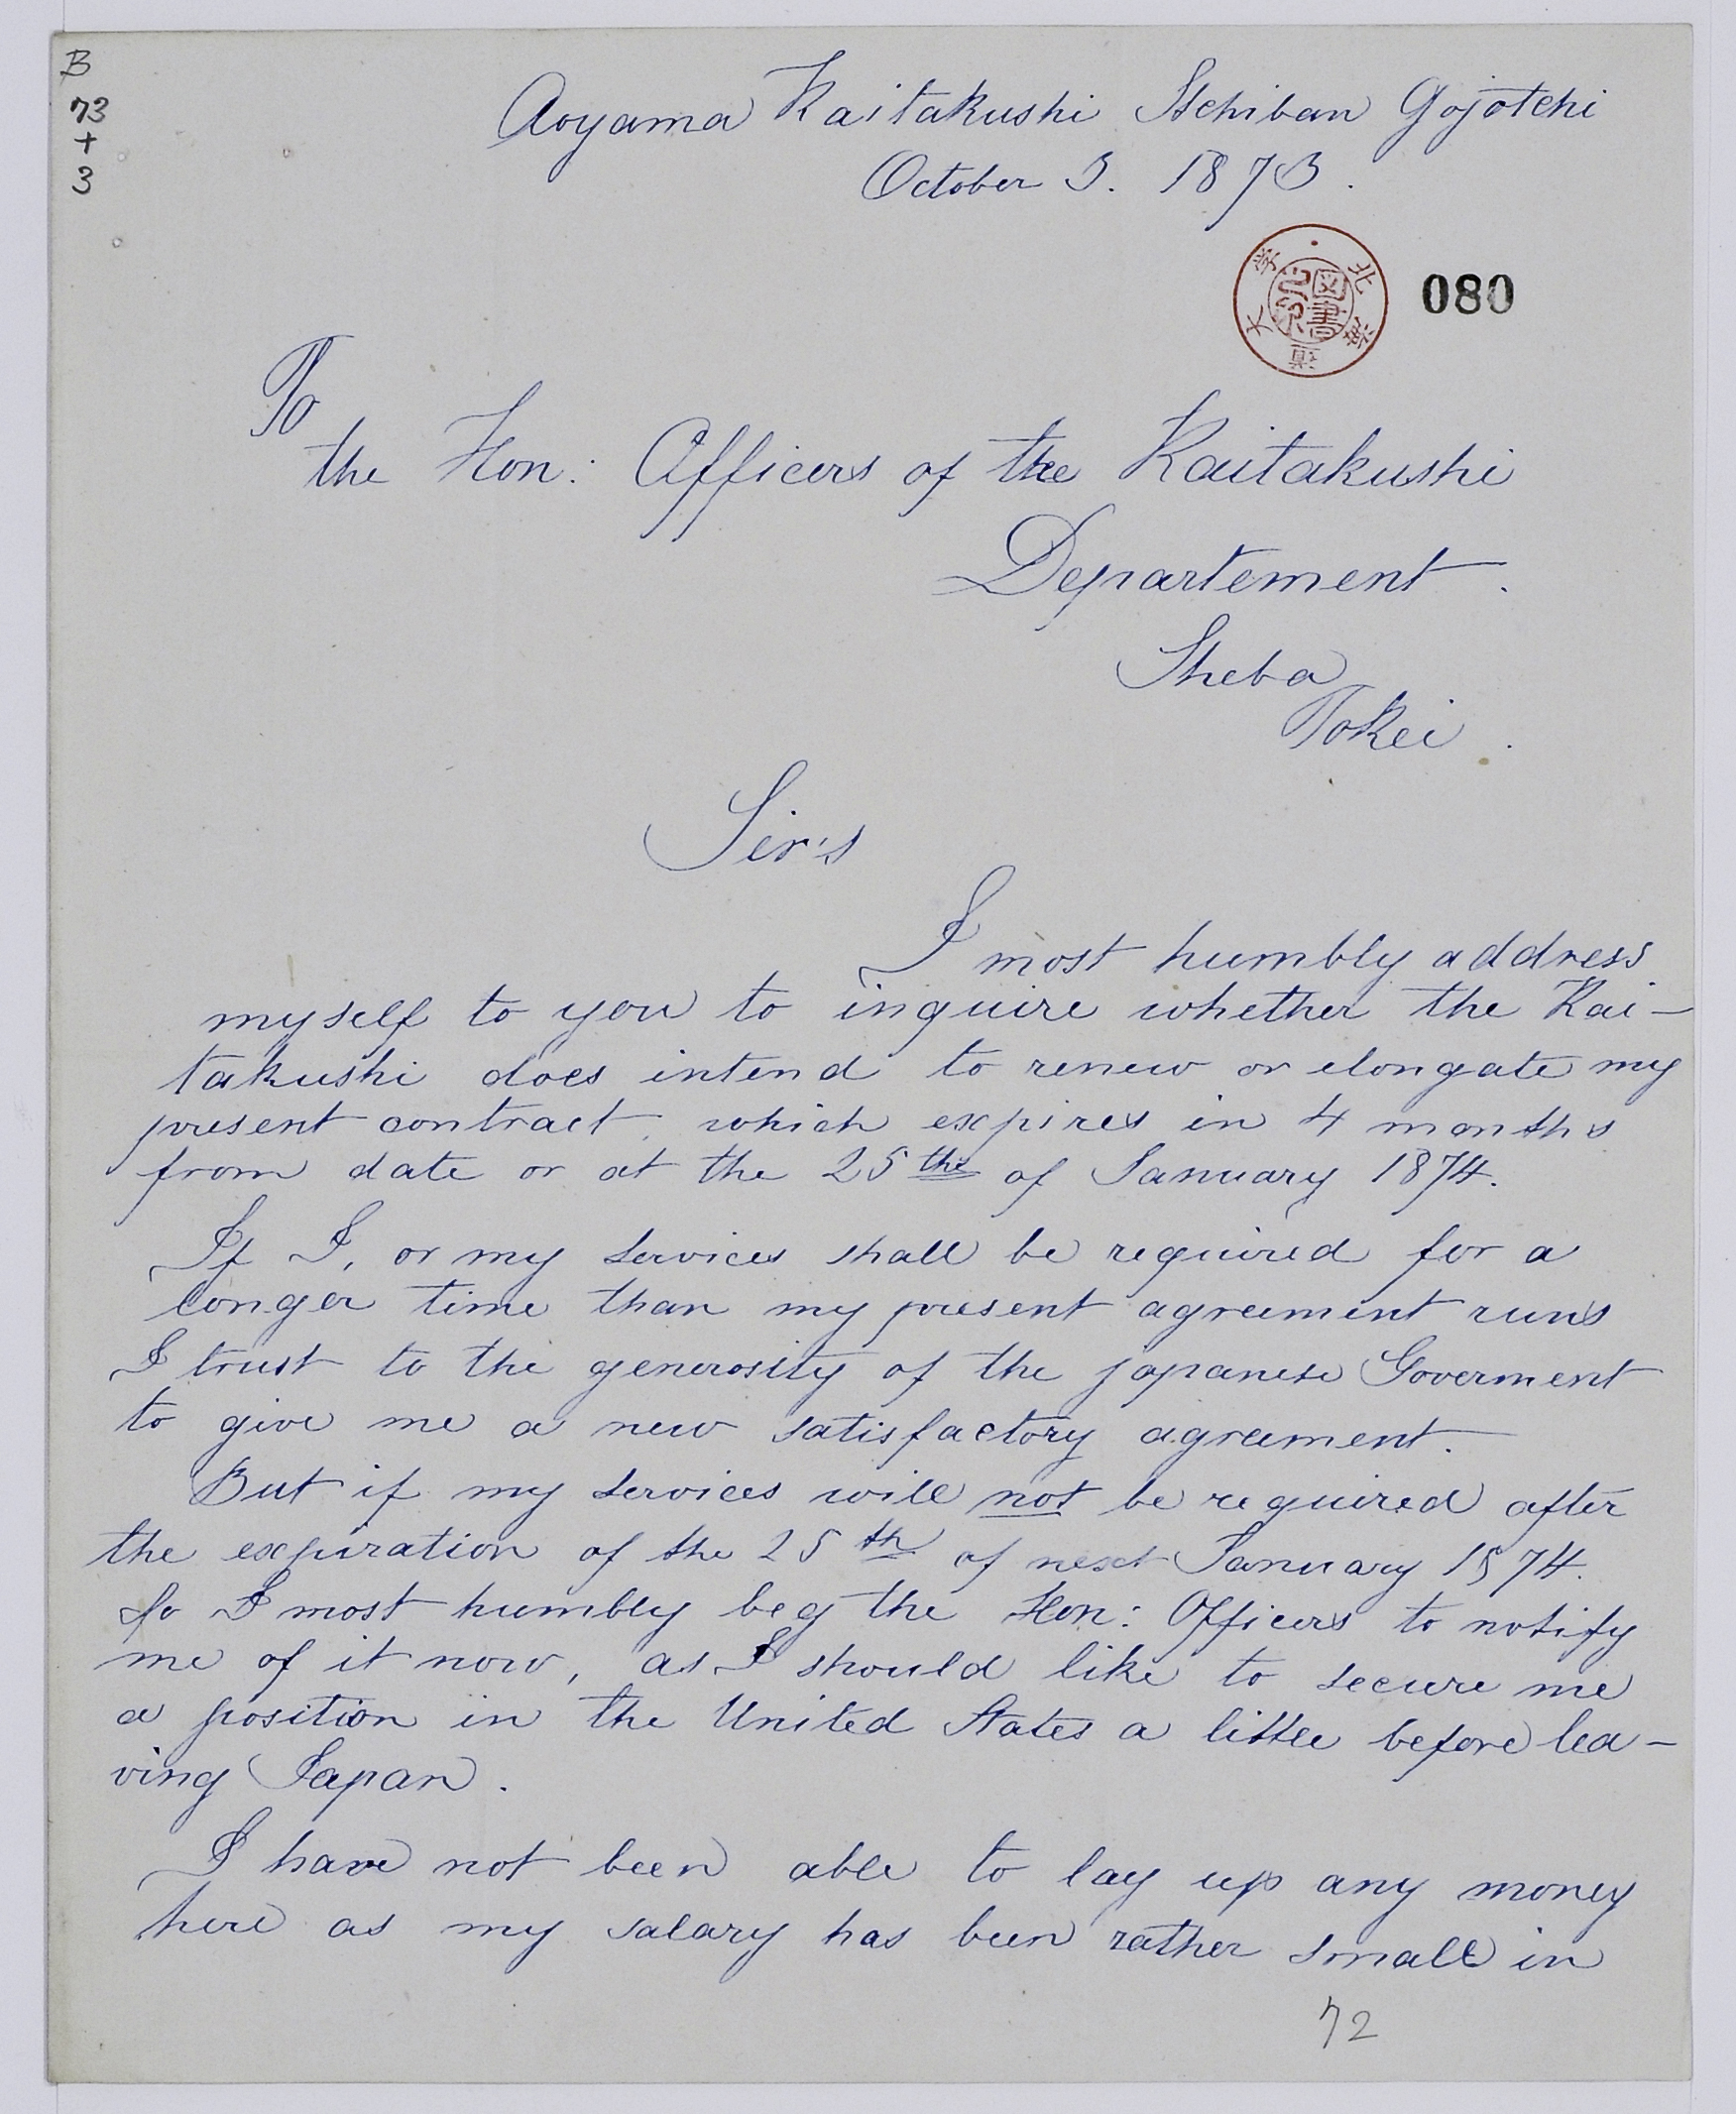 B
73
+
3
Aoyama Kaitakushi Itchiban Gojotchi
October 3. 1873.
北海道大学
図書
080
To
the Hon: Officers of the Kaitakushi
Departement.
Sheba
Tokei.
Sir's
I most humbly address
myself to you to inquire whether the Kai-
takushi does intend to renew or elongate my
present contract, which expires in 4 months
from date or at the 25the of January 1874.
If I, or my services shall be required for a
longer time than my present agreement runs
I trust to the generosity of the japanese Goverment
to give me a new satisfactory agreement.
But if my services will not be required after
the expiration of the 25th of next January 1874.
So I most humbly beg the Hon: Officers to notify
me of it now, as I should like to secure me
a position in the United States a little before lea-
ving Japan.
I have not been able to lay up any money
here as my salary has been rather small in
72